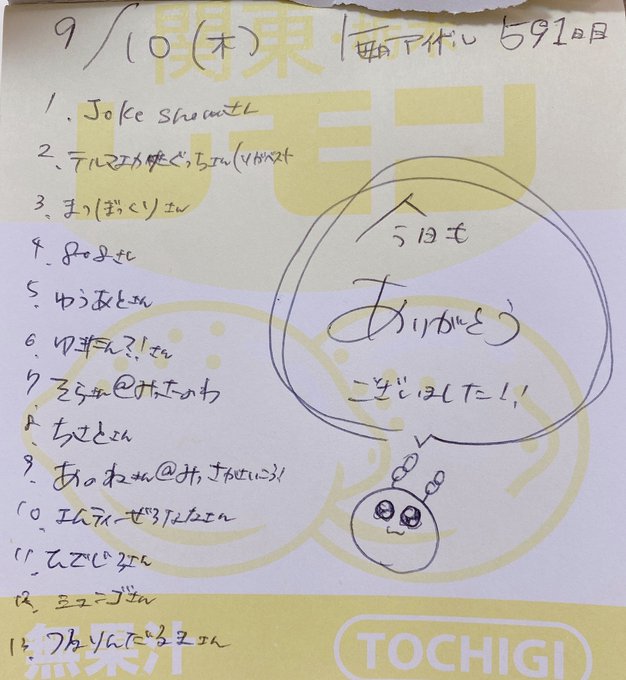 9/10(木) 毎日アイドル 591日目
関東・栃木
レモン
1. Joke showさん
2. テルマエかたぐっちさん(りがベスト
3. まつぼっくりさん
4. 808さん
5. ゆうあとさん
6. ゆ誰ん?!さん
7. そらさん@みっきーのわ
8. ちさとさん
9. あのねさん@みっさがせいころ!
10. エムティーぜろななさん
11. ひでじろさん
12. ミュニゴさん
13. つるりんだるまさん
今日も
ありがとう
ございました!!
無果汁
TOCHIGI